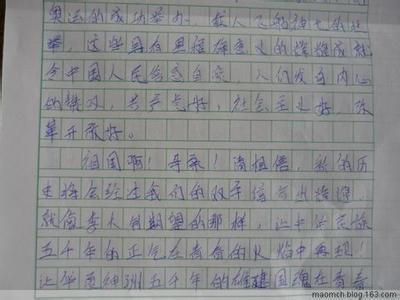 奥运的成功举办,在人飞船神七的壮
举,这些具有里程碑意义的辉煌成就
令中国人民倍感自豪,人们发自内心
的赞叹,共产党好,社会主义好,改
革开放好。
祖国啊!母亲!请相信,新的历
史将会经过我们的双手谱写出辉煌,
就像李大钊期望的那样,让中华民族
五千年的正气在青春的火焰中再现!
让华夏神洲五千年的雄建国魂在青春
maomch.blog.163.com